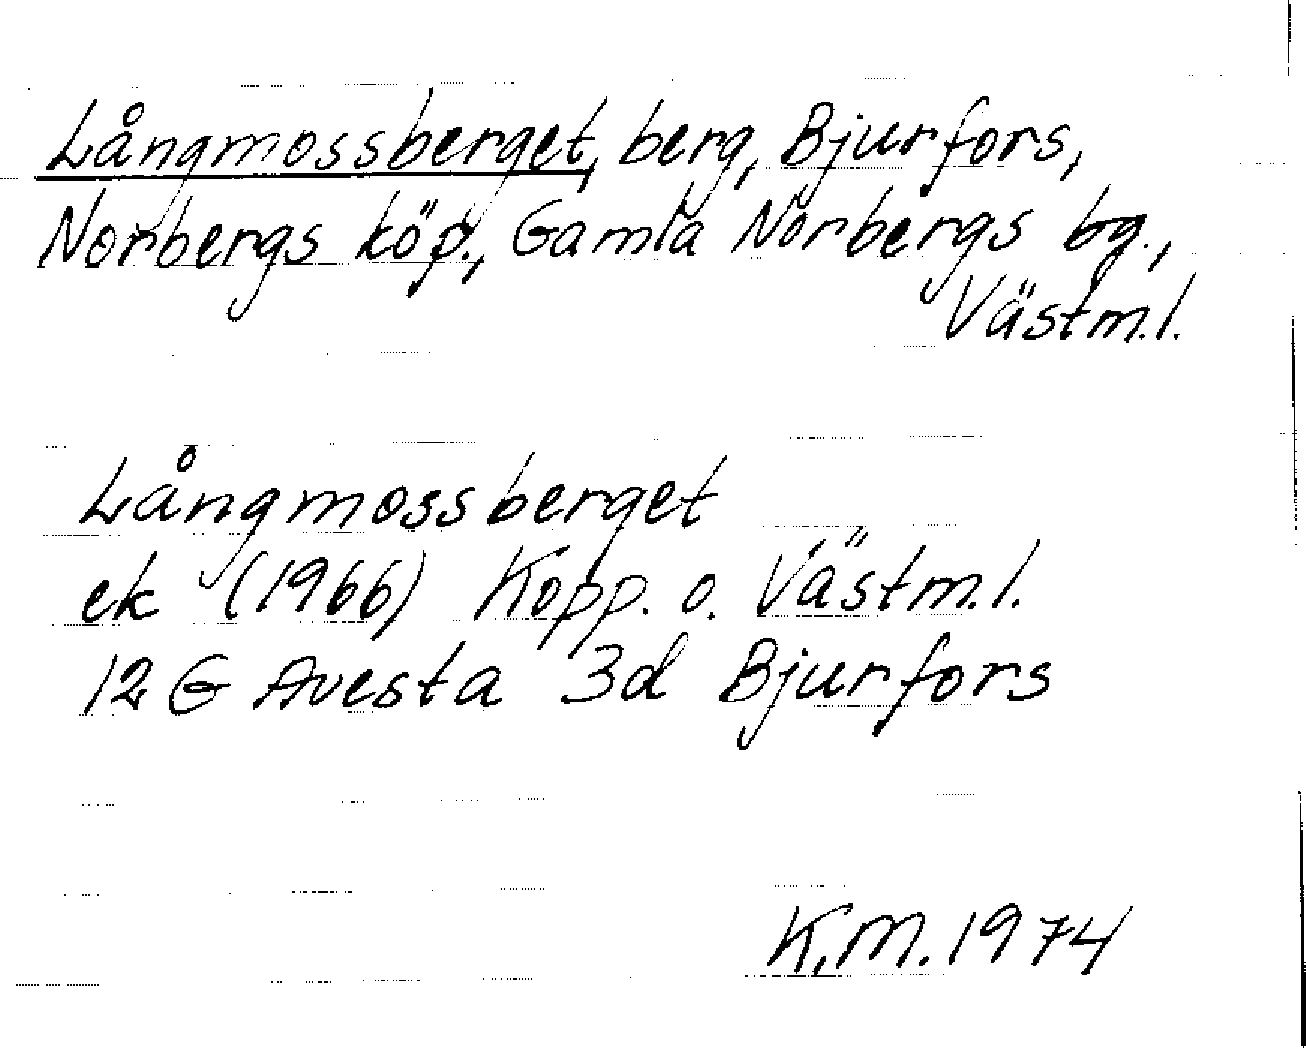 Långmossberget, berg, Bjurfors,
Norbergs köp., Gamla Norbergs bg.,
Västm.l.
Långmossberget
ek (1966) Kopp. o. Västm.l.
12 G Avesta 3d Bjurfors
K.M. 1974